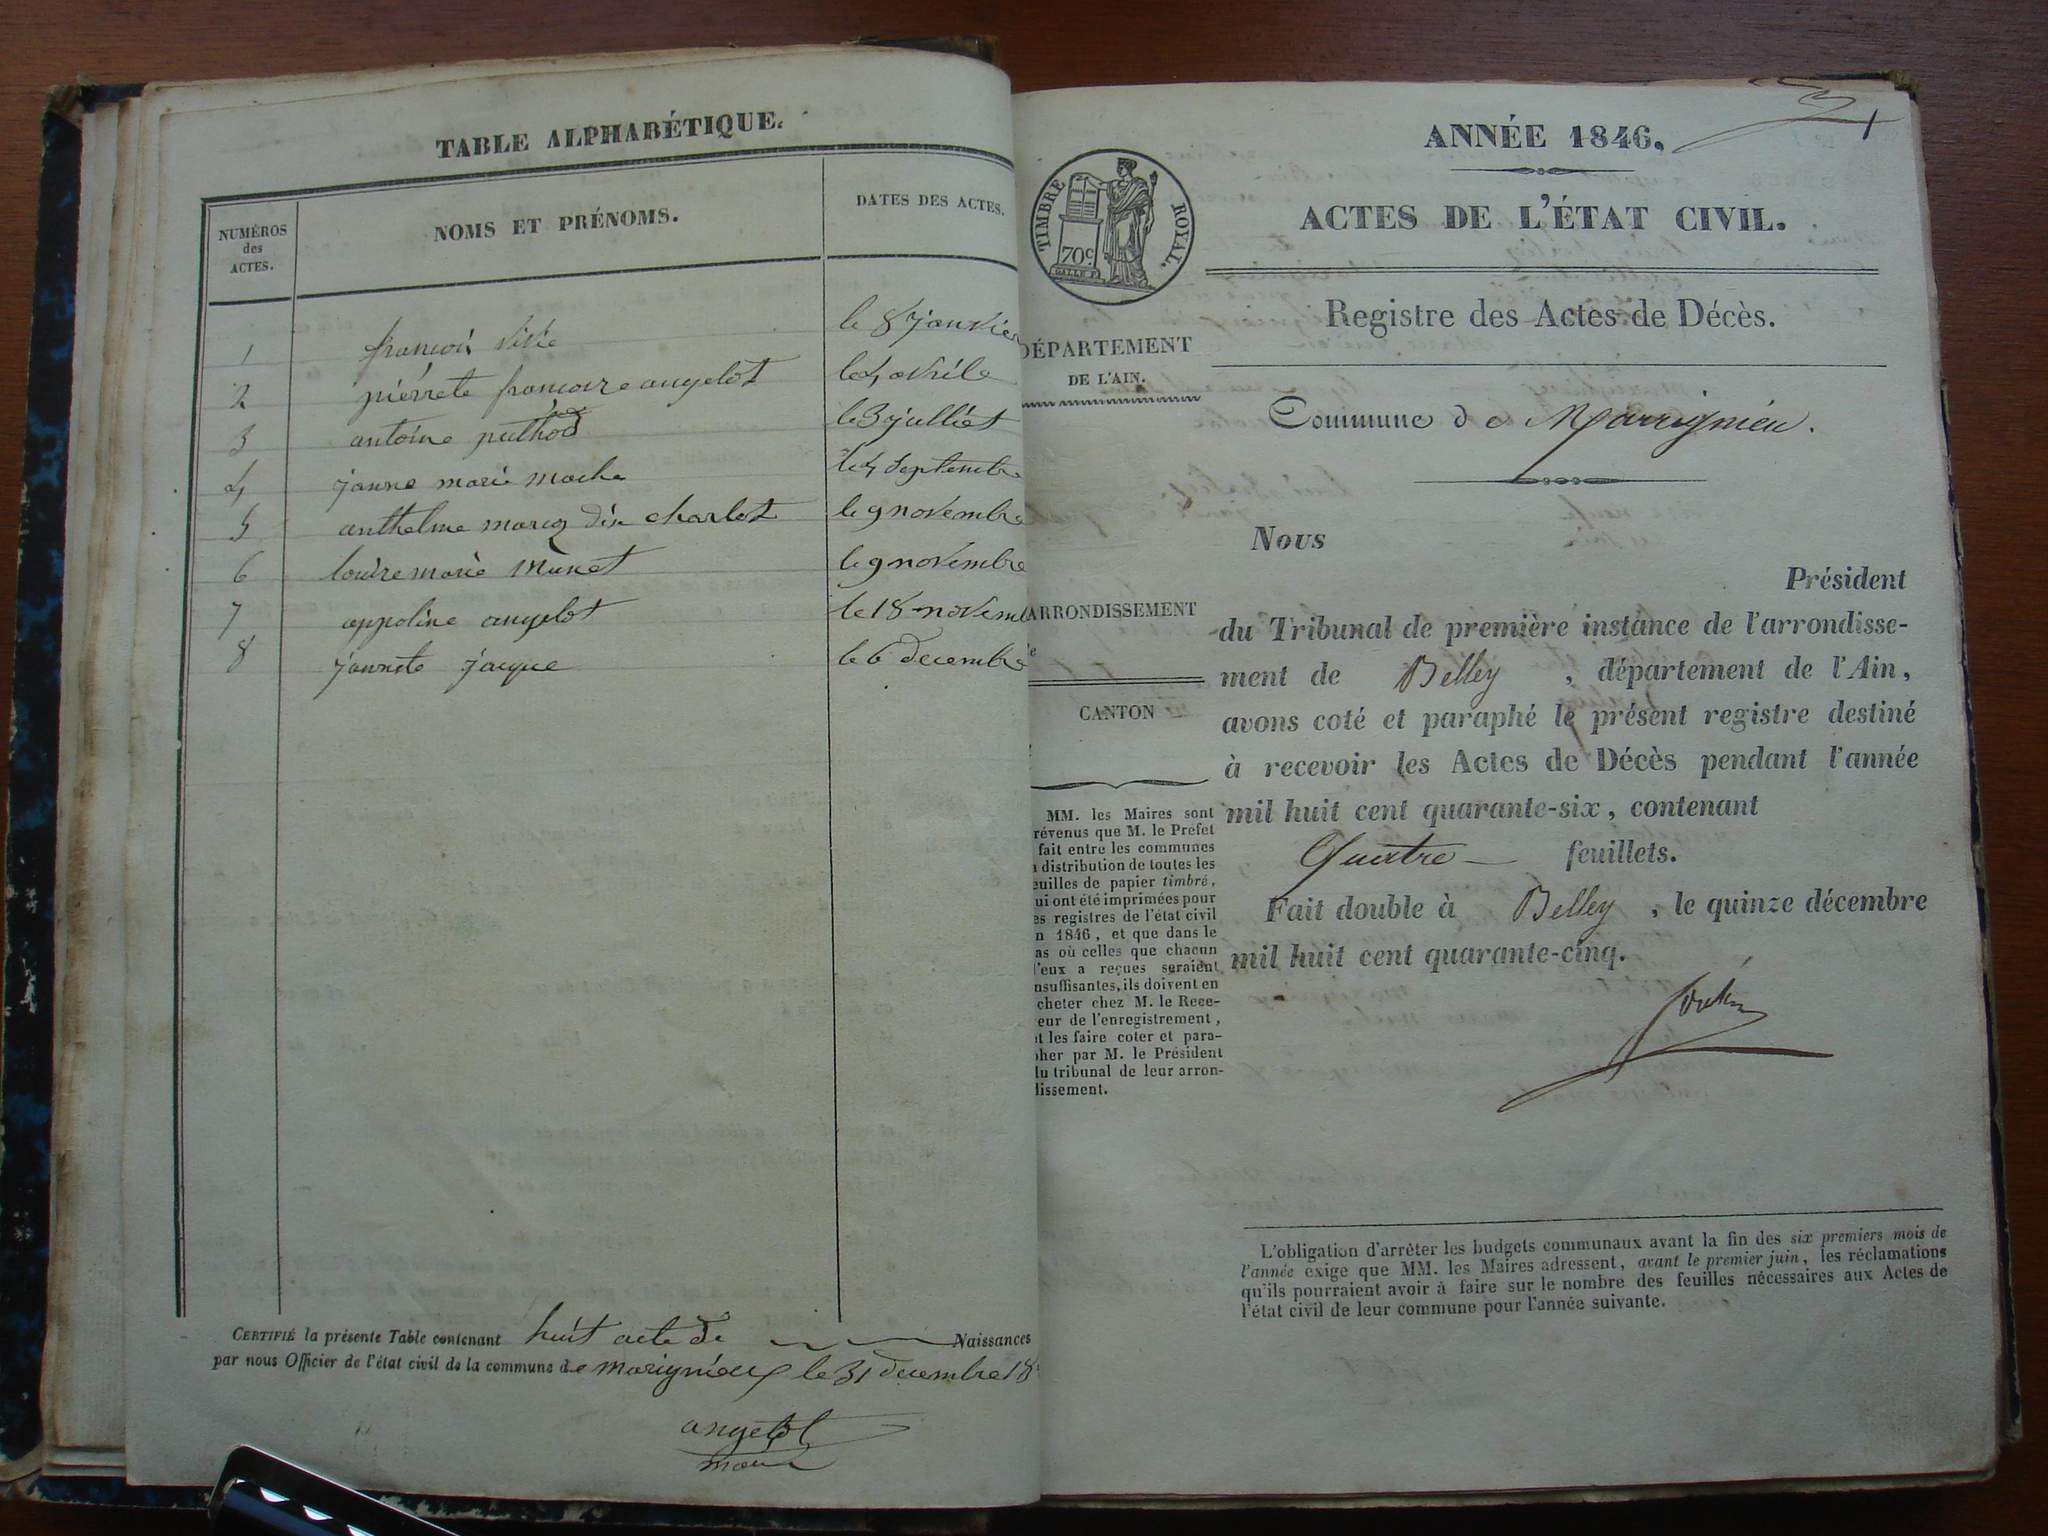 TABLE ALPHABÉTIQUE.
NUMÉROS
des
ACTES.
NOMS ET PRÉNOMS.
DATES DES ACTES.
1 françois vivie le 8 janvier
2 pierrete françoise angelot le 4 avrile
3 antoine puthod le 3 julliet
4 janne marie le 4 septembre
5 anthelme dix charlot le 9 novembre
6 louise marie le 9 novembre
7 appoline angelot le 18 novembre
8 jannete jacque le 6 decembre
CERTIFIÉ la présente Table contenant huit acte de Naissances
par nous Officier de l'état civil de la commune de marignieux le 31 decembre 18
angelot
ANNÉE 1846. 1
ACTES DE L'ÉTAT CIVIL.
TIMBRE ROYAL.
70c
Registre des Actes de Décès.
DÉPARTEMENT
DE L'AIN.
Commune de Marrignieu.
Nous
Président
ARRONDISSEMENT
du Tribunal de première instance de l'arrondisse-
ment de Belley, département de l'Ain,
CANTON
avons coté et paraphé le présent registre destiné
à recevoir les Actes de Décès pendant l'année
mil huit cent quarante-six, contenant
Quatre feuillets.
Fait double à Belley, le quinze décembre
mil huit cent quarante-cinq.
MM. les Maires sont
révenus que M. le Prefet
fait entre les communes
a distribution de toutes les
euilles de papier timbré,
ui ont été imprimées pour
es registres de l'état civil
n 1846, et que dans le
as où celles que chacun
d'eux a reçues seraient
nsuffisantes, ils doivent en
cheter chez M. le Rece-
eur de l'enregistrement,
t les faire coter et para-
pher par M. le Président
du tribunal de leur arron-
dissement.
L'obligation d'arrêter les budgets communaux avant la fin des six premiers mois de
l'année exige que MM. les Maires adressent, avant le premier juin, les réclamations
qu'ils pourraient avoir à faire sur le nombre des feuilles nécessaires aux Actes de
l'état civil de leur commune pour l'année suivante.